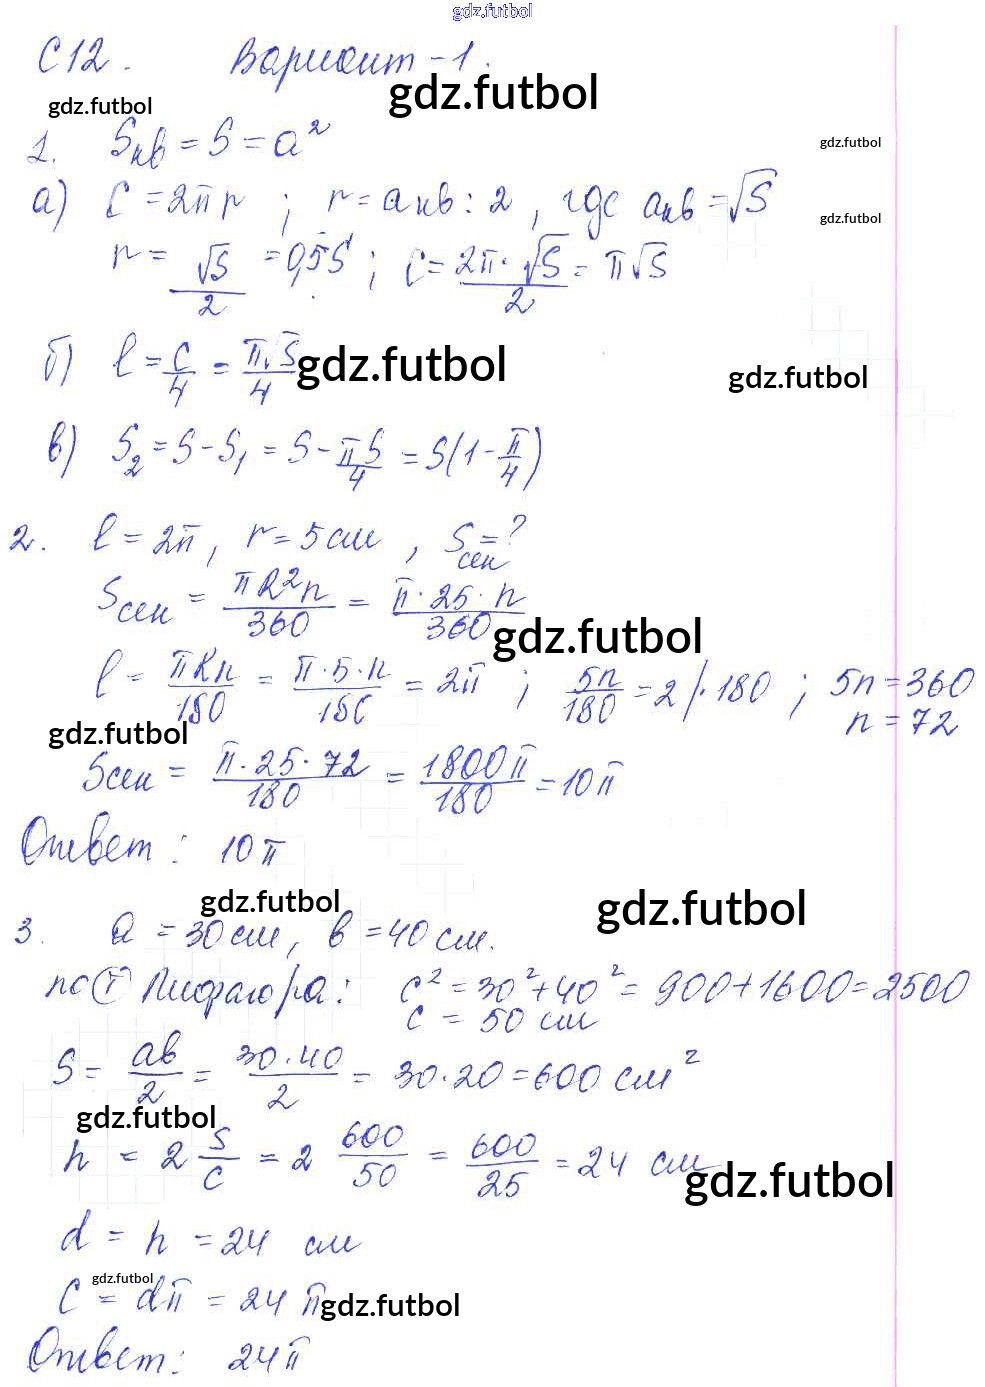 gdz.futbol
С12. Вариант-1.
gdz.futbol gdz.futbol
1. Sкв = S = a²
gdz.futbol
а) C = 2πr ; r = aкв : 2 , где aкв = √S
gdz.futbol
r = √S/2 = 0,5S ; C = 2π·√S/2 = π√S
б) l = C/4 = π√S/4
gdz.futbol gdz.futbol
в) S₂ = S - S₁ = S - πS/4 = S(1 - π/4)
2. l = 2π, r = 5см , Sсек = ?
Sсек = πR²n/360 = π·25·n/360
gdz.futbol
l = πRn/180 = π·5·n/180 = 2π ; 5n/180 = 2 /·180 ; 5n = 360
n = 72
gdz.futbol
Sсек = π·25·72/180 = 1800π/180 = 10π
Ответ: 10π
gdz.futbol gdz.futbol
3. a = 30см, в = 40см.
по Т Пифагора: c² = 30² + 40² = 900+1600=2500
c = 50 см
S = aв/2 = 30·40/2 = 30·20 = 600 см²
gdz.futbol
h = 2 S/c = 2 600/50 = 600/25 = 24 см
gdz.futbol
d = h = 24 см
gdz.futbol
C = dπ = 24π
gdz.futbol
Ответ: 24π